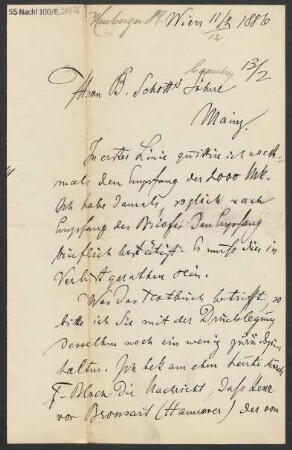 55 Nachl 100/B,
Heuberger R. Wien 11/2 1886
12
13/2
Herrn B. Schott's Söhne
Mainz.
In erster Linie quittire ich noch-
mals den Empfang der 2000 Mk.
Ich habe damals, sogleich nach
Empfang des Briefes den Empfang
brieflich bestätigt. Es muß dies in
Verlust gerathen sein.
Was das Textbuch betrifft, so
bitte ich Sie mit der Drucklegung
desselben noch ein wenig zurückzu-
halten. Ich bekam eben heute durch
F. Bloch die Nachricht, daß Herr
von Bronsart (Hannover) der von